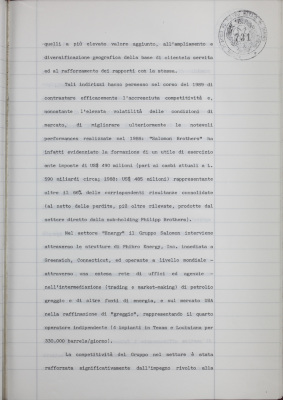 731
quelli a più elevato valore aggiunto, all'ampliamento e
diversificazione geografica della base di clientela servita
ed al rafforzamento dei rapporti con la stessa.
Tali indirizzi hanno permesso nel corso del 1989 di
contrastare efficacemente l'accresciuta competitività e,
nonostante l'elevata volatilità delle condizioni di
mercato, di migliorare ulteriormente la notevoli
performance realizzate nel 1988: "Salomon Brothers" ha
infatti evidenziato la formazione di un utile di esercizio
ante imposte di US$ 490 milioni (pari ai cambi attuali a L.
590 miliardi circa; 1988: US$ 485 milioni) rappresentante
oltre il 66% delle corrispondenti risultanze consolidate
(al netto delle perdite, più oltre rilevate, prodotte dal
settore diretto dalla sub-holding Philipp Brothers).
Nel settore "Energy" il Gruppo Salomon interviene
attraverso la struttura di Phibro Energy, Inc. insediata a
Greenwich, Connecticut, ed operante a livello mondiale -
attraverso una estesa rete di uffici ed agenzie -
nell'intermediazione (trading e market-making) di petrolio
greggio e di altre fonti di energia, e sul mercato USA
nella raffinazione di "greggio", rappresentando il quarto
operatore indipendente (4 impianti in Texas e Louisiana per
330.000 barrels/giorno).
La competitività del Gruppo nel settore è stata
rafforzata significativamente dall'impegno rivolto alla